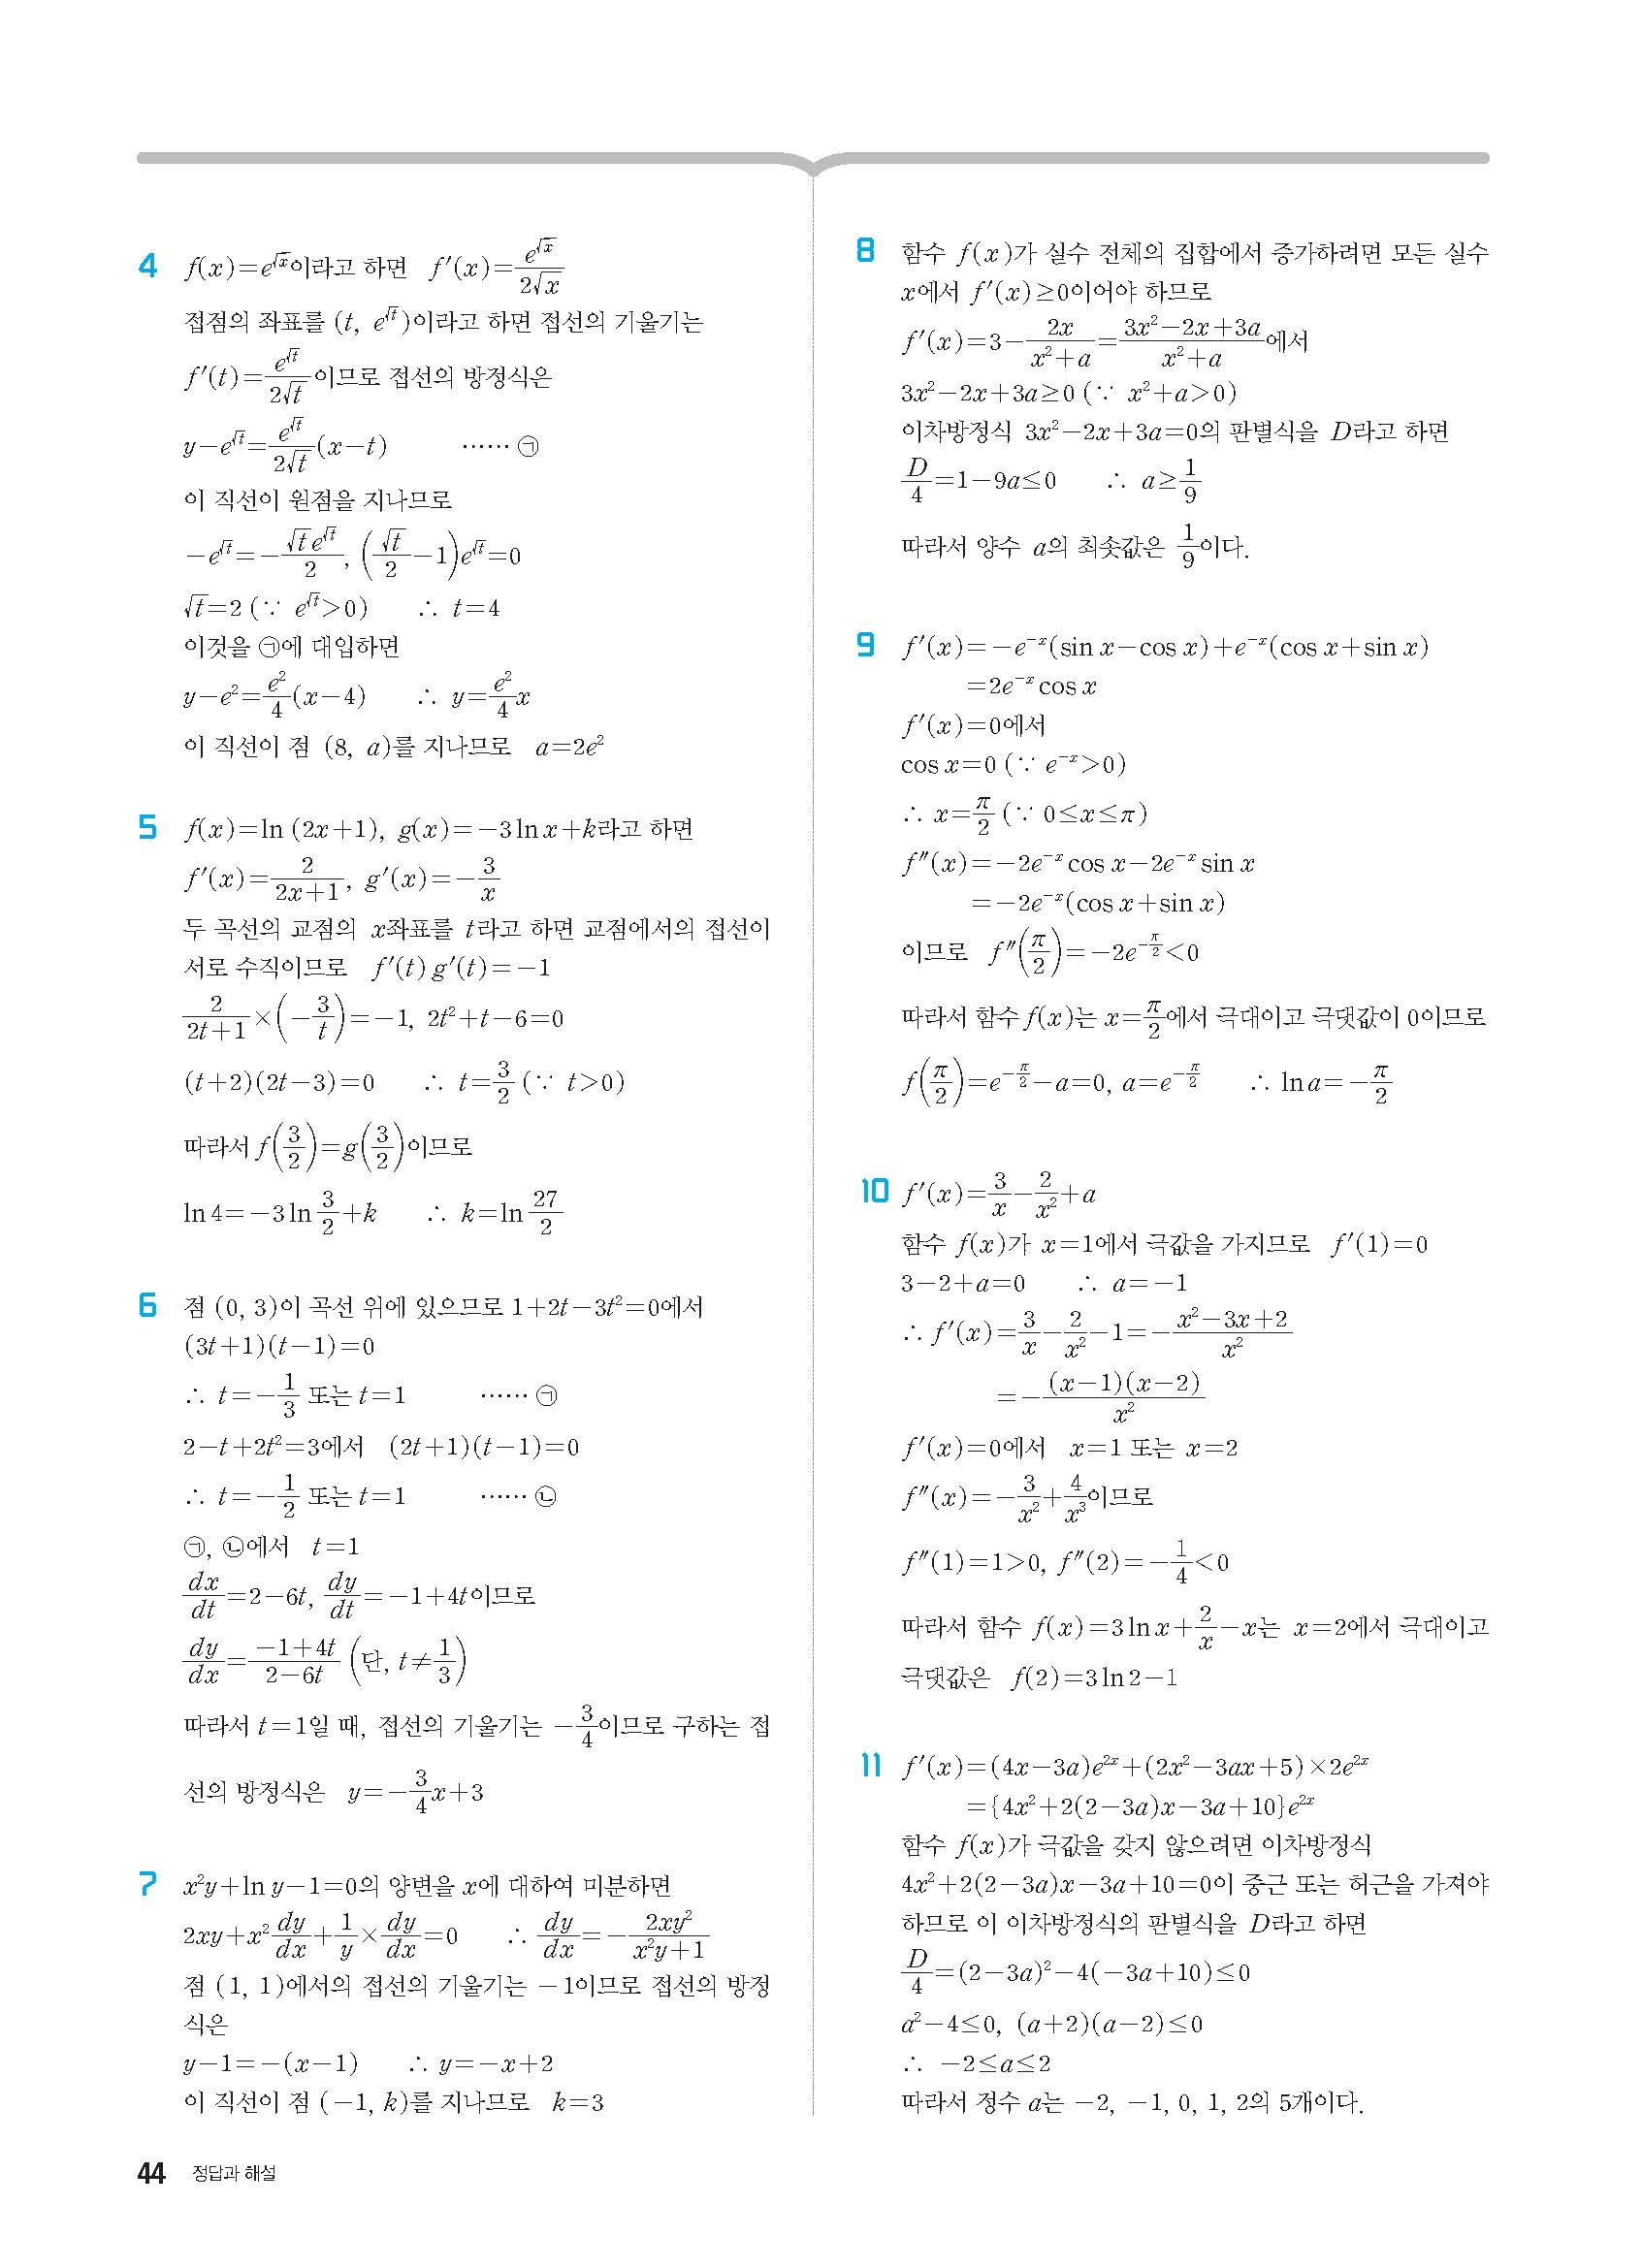 4 f(x)=e^{√x}이라고 하면 f′(x)=\frac{e^{√x}}{2√x}
접점의 좌표를 (t, e^{√t})이라고 하면 접선의 기울기는
f′(t)=\frac{e^{√t}}{2√t}이므로 접선의 방정식은
y-e^{√t}=\frac{e^{√t}}{2√t}(x-t) …… ㉠
이 직선이 원점을 지나므로
-e^{√t}=-\frac{√t e^{√t}}{2}, (\frac{√t}{2}-1)e^{√t}=0
√t=2 (∵ e^{√t}>0) ∴ t=4
이것을 ㉠에 대입하면
y-e²=\frac{e²}{4}(x-4) ∴ y=\frac{e²}{4}x
이 직선이 점 (8, a)를 지나므로 a=2e²
5 f(x)=ln (2x+1), g(x)=-3 ln x+k라고 하면
f′(x)=\frac{2}{2x+1}, g′(x)=-\frac{3}{x}
두 곡선의 교점의 x좌표를 t라고 하면 교점에서의 접선이
서로 수직이므로 f′(t)g′(t)=-1
\frac{2}{2t+1}×(-\frac{3}{t})=-1, 2t²+t-6=0
(t+2)(2t-3)=0 ∴ t=\frac{3}{2} (∵ t>0)
따라서 f(\frac{3}{2})=g(\frac{3}{2})이므로
ln 4=-3 ln \frac{3}{2}+k ∴ k=ln \frac{27}{2}
6 점 (0, 3)이 곡선 위에 있으므로 1+2t-3t²=0에서
(3t+1)(t-1)=0
∴ t=-\frac{1}{3} 또는 t=1 …… ㉠
2-t+2t²=3에서 (2t+1)(t-1)=0
∴ t=-\frac{1}{2} 또는 t=1 …… ㉡
㉠, ㉡에서 t=1
\frac{dx}{dt}=2-6t, \frac{dy}{dt}=-1+4t이므로
\frac{dy}{dx}=\frac{-1+4t}{2-6t} (단, t≠\frac{1}{3})
따라서 t=1일 때, 접선의 기울기는 -\frac{3}{4}이므로 구하는 접
선의 방정식은 y=-\frac{3}{4}x+3
7 x²y+ln y-1=0의 양변을 x에 대하여 미분하면
2xy+x²\frac{dy}{dx}+\frac{1}{y}×\frac{dy}{dx}=0 ∴ \frac{dy}{dx}=-\frac{2xy²}{x²y+1}
점 (1, 1)에서의 접선의 기울기는 -1이므로 접선의 방정
식은
y-1=-(x-1) ∴ y=-x+2
이 직선이 점 (-1, k)를 지나므로 k=3
8 함수 f(x)가 실수 전체의 집합에서 증가하려면 모든 실수
x에서 f′(x)≥0이어야 하므로
f′(x)=3-\frac{2x}{x²+a}=\frac{3x²-2x+3a}{x²+a}에서
3x²-2x+3a≥0 (∵ x²+a>0)
이차방정식 3x²-2x+3a=0의 판별식을 D라고 하면
\frac{D}{4}=1-9a≤0 ∴ a≥\frac{1}{9}
따라서 양수 a의 최솟값은 \frac{1}{9}이다.
9 f′(x)=-e^{-x}(sin x-cos x)+e^{-x}(cos x+sin x)
=2e^{-x} cos x
f′(x)=0에서
cos x=0 (∵ e^{-x}>0)
∴ x=\frac{π}{2} (∵ 0≤x≤π)
f″(x)=-2e^{-x} cos x-2e^{-x} sin x
=-2e^{-x}(cos x+sin x)
이므로 f″(\frac{π}{2})=-2e^{-\frac{π}{2}}<0
따라서 함수 f(x)는 x=\frac{π}{2}에서 극대이고 극댓값이 0이므로
f(\frac{π}{2})=e^{-\frac{π}{2}}-a=0, a=e^{-\frac{π}{2}} ∴ ln a=-\frac{π}{2}
10 f′(x)=\frac{3}{x}-\frac{2}{x²}+a
함수 f(x)가 x=1에서 극값을 가지므로 f′(1)=0
3-2+a=0 ∴ a=-1
∴ f′(x)=\frac{3}{x}-\frac{2}{x²}-1=-\frac{x²-3x+2}{x²}
=-\frac{(x-1)(x-2)}{x²}
f′(x)=0에서 x=1 또는 x=2
f″(x)=-\frac{3}{x²}+\frac{4}{x³}이므로
f″(1)=1>0, f″(2)=-\frac{1}{4}<0
따라서 함수 f(x)=3 ln x+\frac{2}{x}-x는 x=2에서 극대이고
극댓값은 f(2)=3 ln 2-1
11 f′(x)=(4x-3a)e^{2x}+(2x²-3ax+5)×2e^{2x}
={4x²+2(2-3a)x-3a+10}e^{2x}
함수 f(x)가 극값을 갖지 않으려면 이차방정식
4x²+2(2-3a)x-3a+10=0이 중근 또는 허근을 가져야
하므로 이 이차방정식의 판별식을 D라고 하면
\frac{D}{4}=(2-3a)²-4(-3a+10)≤0
a²-4≤0, (a+2)(a-2)≤0
∴ -2≤a≤2
따라서 정수 a는 -2, -1, 0, 1, 2의 5개이다.
44 정답과 해설